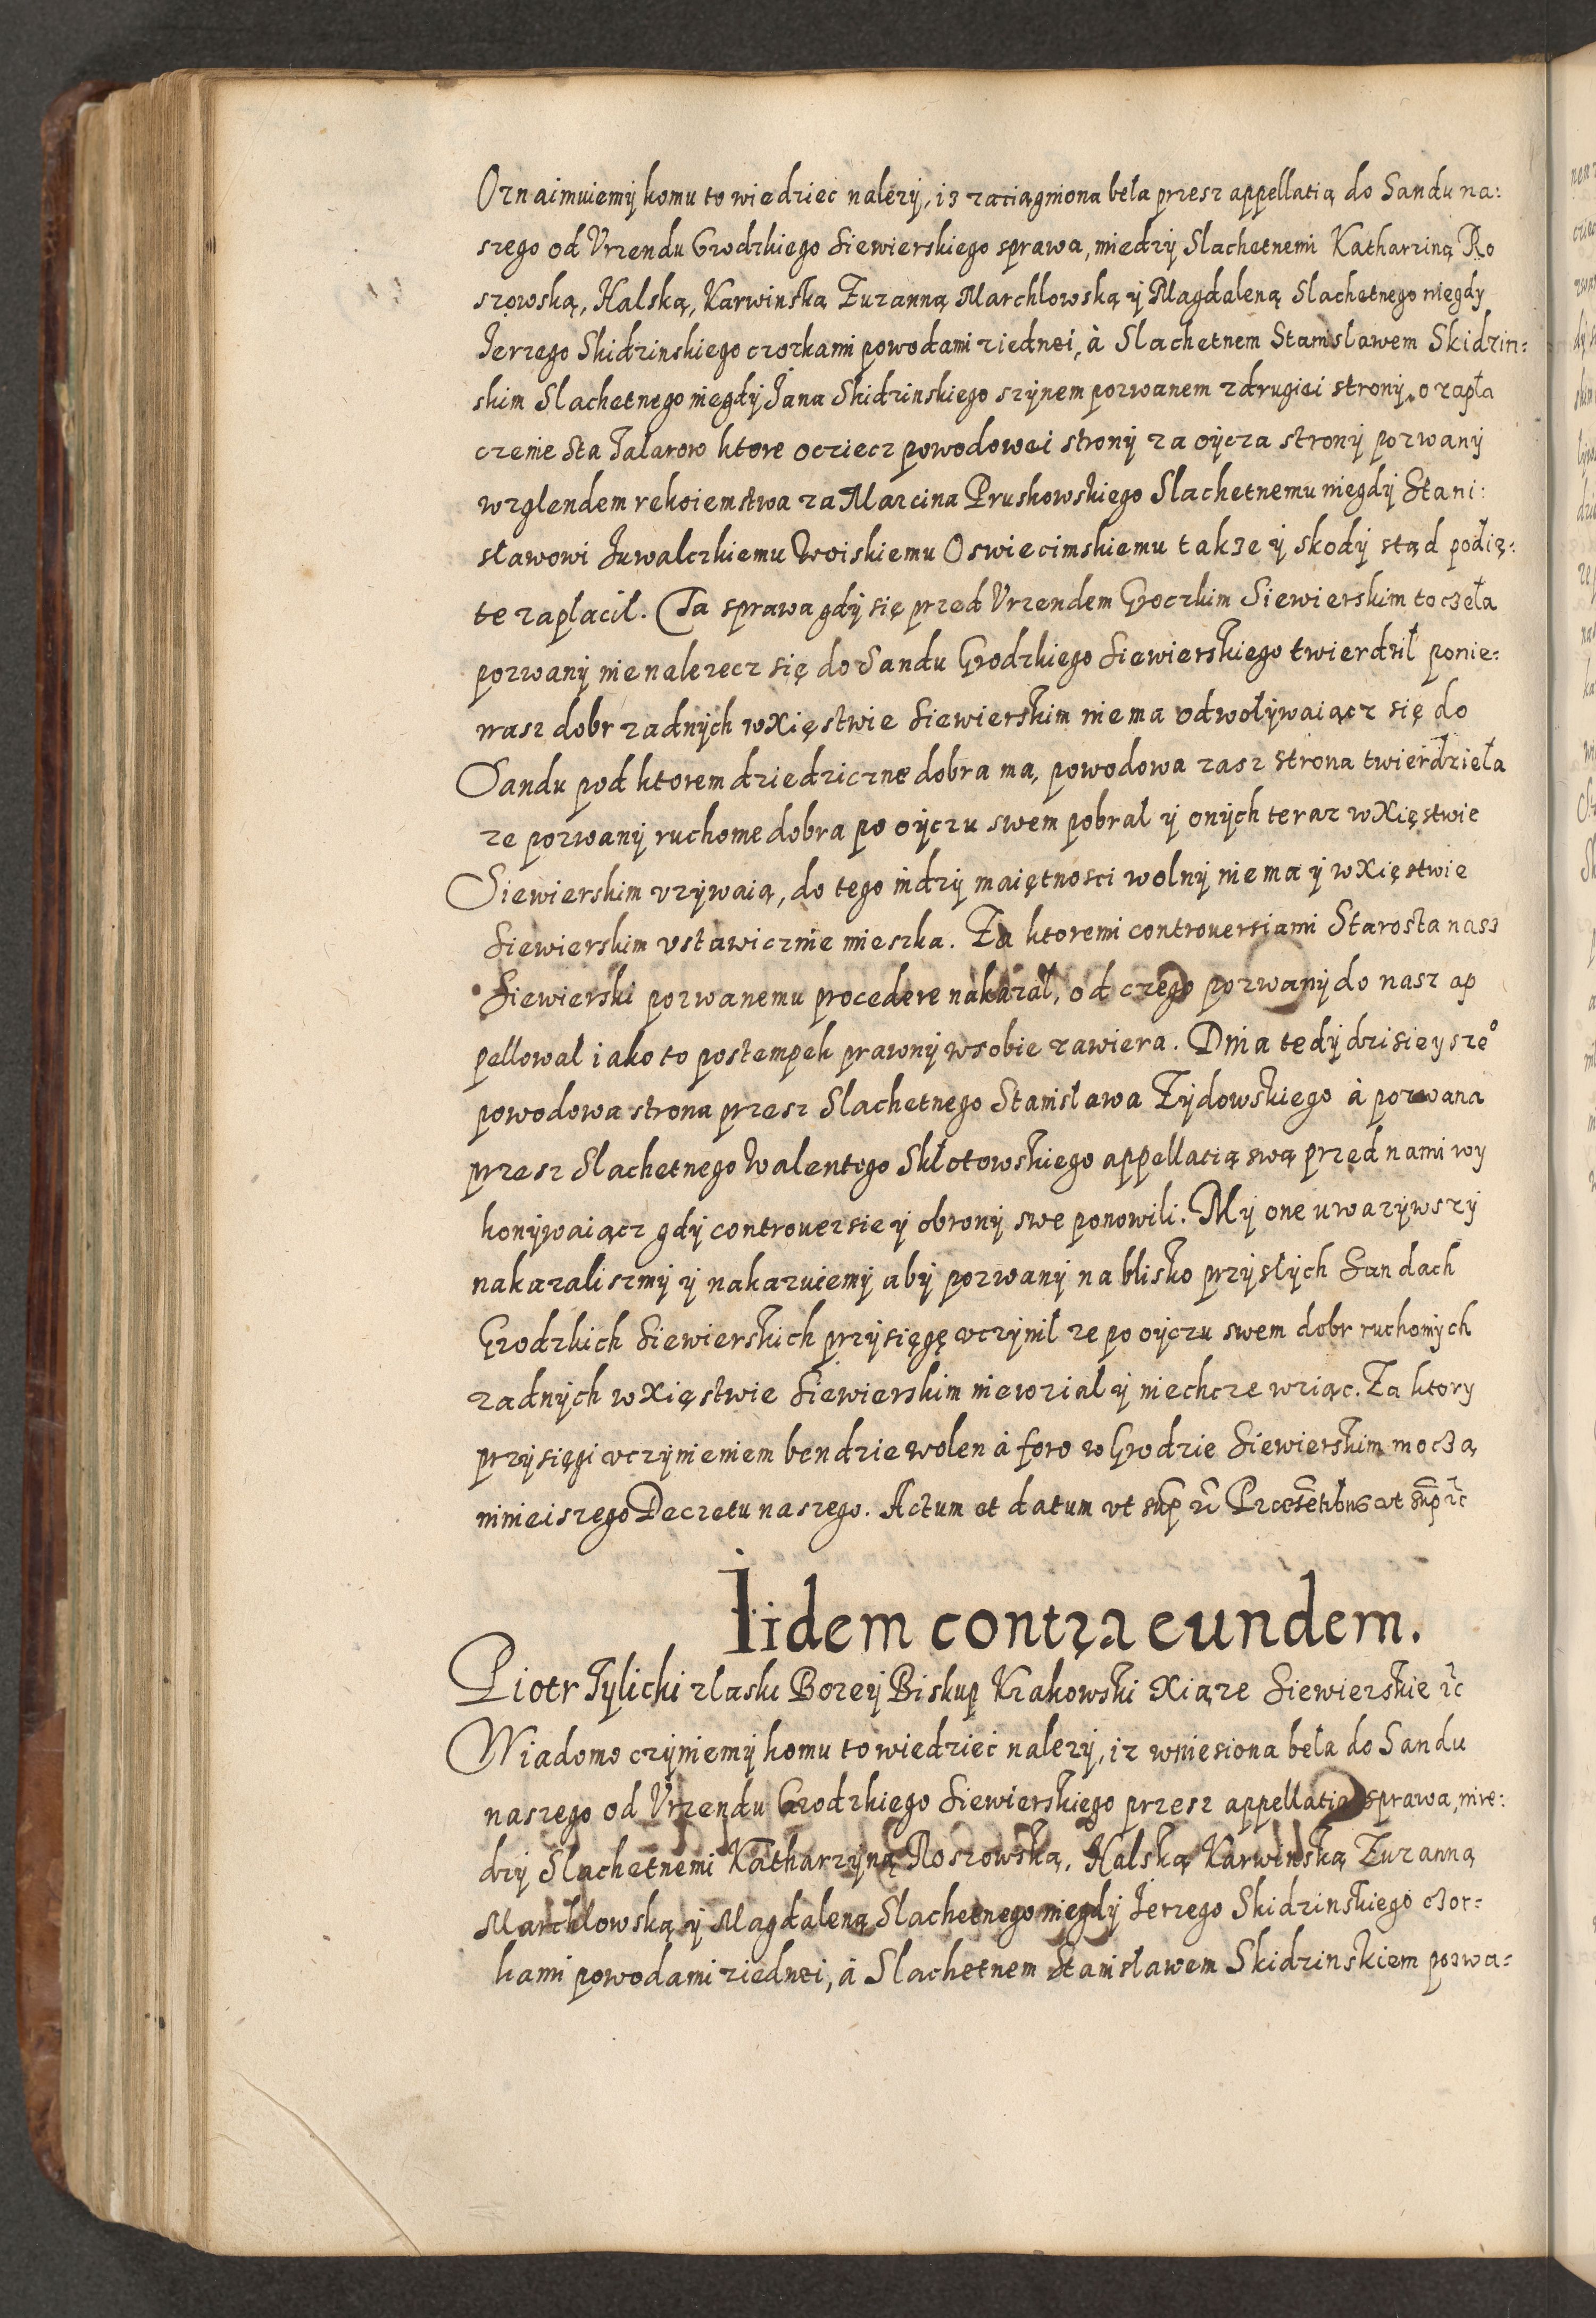 Oznaimuiemÿ komu to wiedziec nalezÿ, iz zaciągniona beła przesz appellatią do Sandu na:
szego od Vrzendu Grodzkiego Siewierskiego sprawa, miedzÿ Slachetnemi Katharziną Ro
szowską, Halską, Karwinską Zuzanną Marchlowską ÿ Magdaleną Slachetnego niegdy
Jerzego Skidzinskiego czorkami powodami ziednei, à Slachetnem Stanislawem Skidzin:
skim Slachetnego niegdÿ Jana Skidzinskiego szÿnem pozwanem zdrugiei stronÿ, o zapła
czenie sta Talarow ktore oeziecz powodowei stronÿ za oÿcza stronÿ pozwanÿ
wzglendem rekoiemstwa za Marcina Pruskowskiego Slachetnemu niegdÿ Stani:
sławowi Juwalczkiemu Woiskiemu Oswiecimskiemu takze ÿ skodÿ stąd podię:
te zapłacił. Ta sprawa gdÿ się przed Vrzendem Groczkim Siewierskim toczeła
pozwanÿ nienalezecz się do Sandu Grodzkiego Siewierskiego twierdził ponie:
wasz dobr zadnÿch w Xięstwie Siewierskim niema odwołÿwaiącz się do
Sandu pod ktorem dziedziczne dobra ma, powodowa zasz strona twierdzieła
ze pozwanÿ ruchome dobra po oÿczu swem pobrał ÿ onÿch teraz w Xięstwie
Siewierskim vzÿwaią, do tego indzÿ maiętnosci wolnÿ niema ÿ w Xięstwie
Siewierskim vstawicznie mieszka. Za ktoremi controuersiami Starosta nasz
Siewierski pozwanemu procedere nakazał, od czego pozwanÿ do nasz ap
pellowal iako to postempek prawnÿ wsobie zawiera. Dnia tedÿ dzisieyszeº
powodowa strona przesz Slachetnego Stanisława Zÿdowskiego à pozwana
przesz Slachetnego Walentego Skłotowskiego appellatią swą przed nami wy
konÿwaiącz gdÿ controuersie ÿ obronÿ swe ponowili. Mÿ one uwazÿwszÿ
nakazaliszmÿ ÿ nakazuiemÿ abÿ pozwanÿ na blisko przÿsłÿch Sandach
Grodzkich Siewierskich przÿsięgę vczÿnił ze po oÿczu swem dobr ruchomÿch
zadnÿch w Xięstwie Siewierskim niewział ÿ niechcze wziąc. Za ktory
przÿsięgi vczÿnieniem bendzie wolen à foro w Grodzie Siewierskim moczą
ninieiszego Decretu naszego. Actum et datum vt sup rc̃ Præsẽtibus vt sup rc̃
Iidem contra eundem.
Piotr Tylicki zlaski Bozeÿ Biskup Krakowski Xiąze Siewierskie rc̃
Wiadomo czÿniemÿ komu to wiedziec nalezÿ, iz wniesiona beła do Sandu
naszego od Vrzendu Grodzkiego Siewierskiego przesz appellatią sprawa, mie:
dzÿ Slachetnemi Katharzÿną Roszowską, Halską Karwinską Zuzanną
Marchlowską ÿ Magdaleną Slachetnego niegdÿ Jerzego Skidzinskiego czor:
kami powodami ziednei, à Slachetnem Stanisławem Skidzinskiem pozwa: